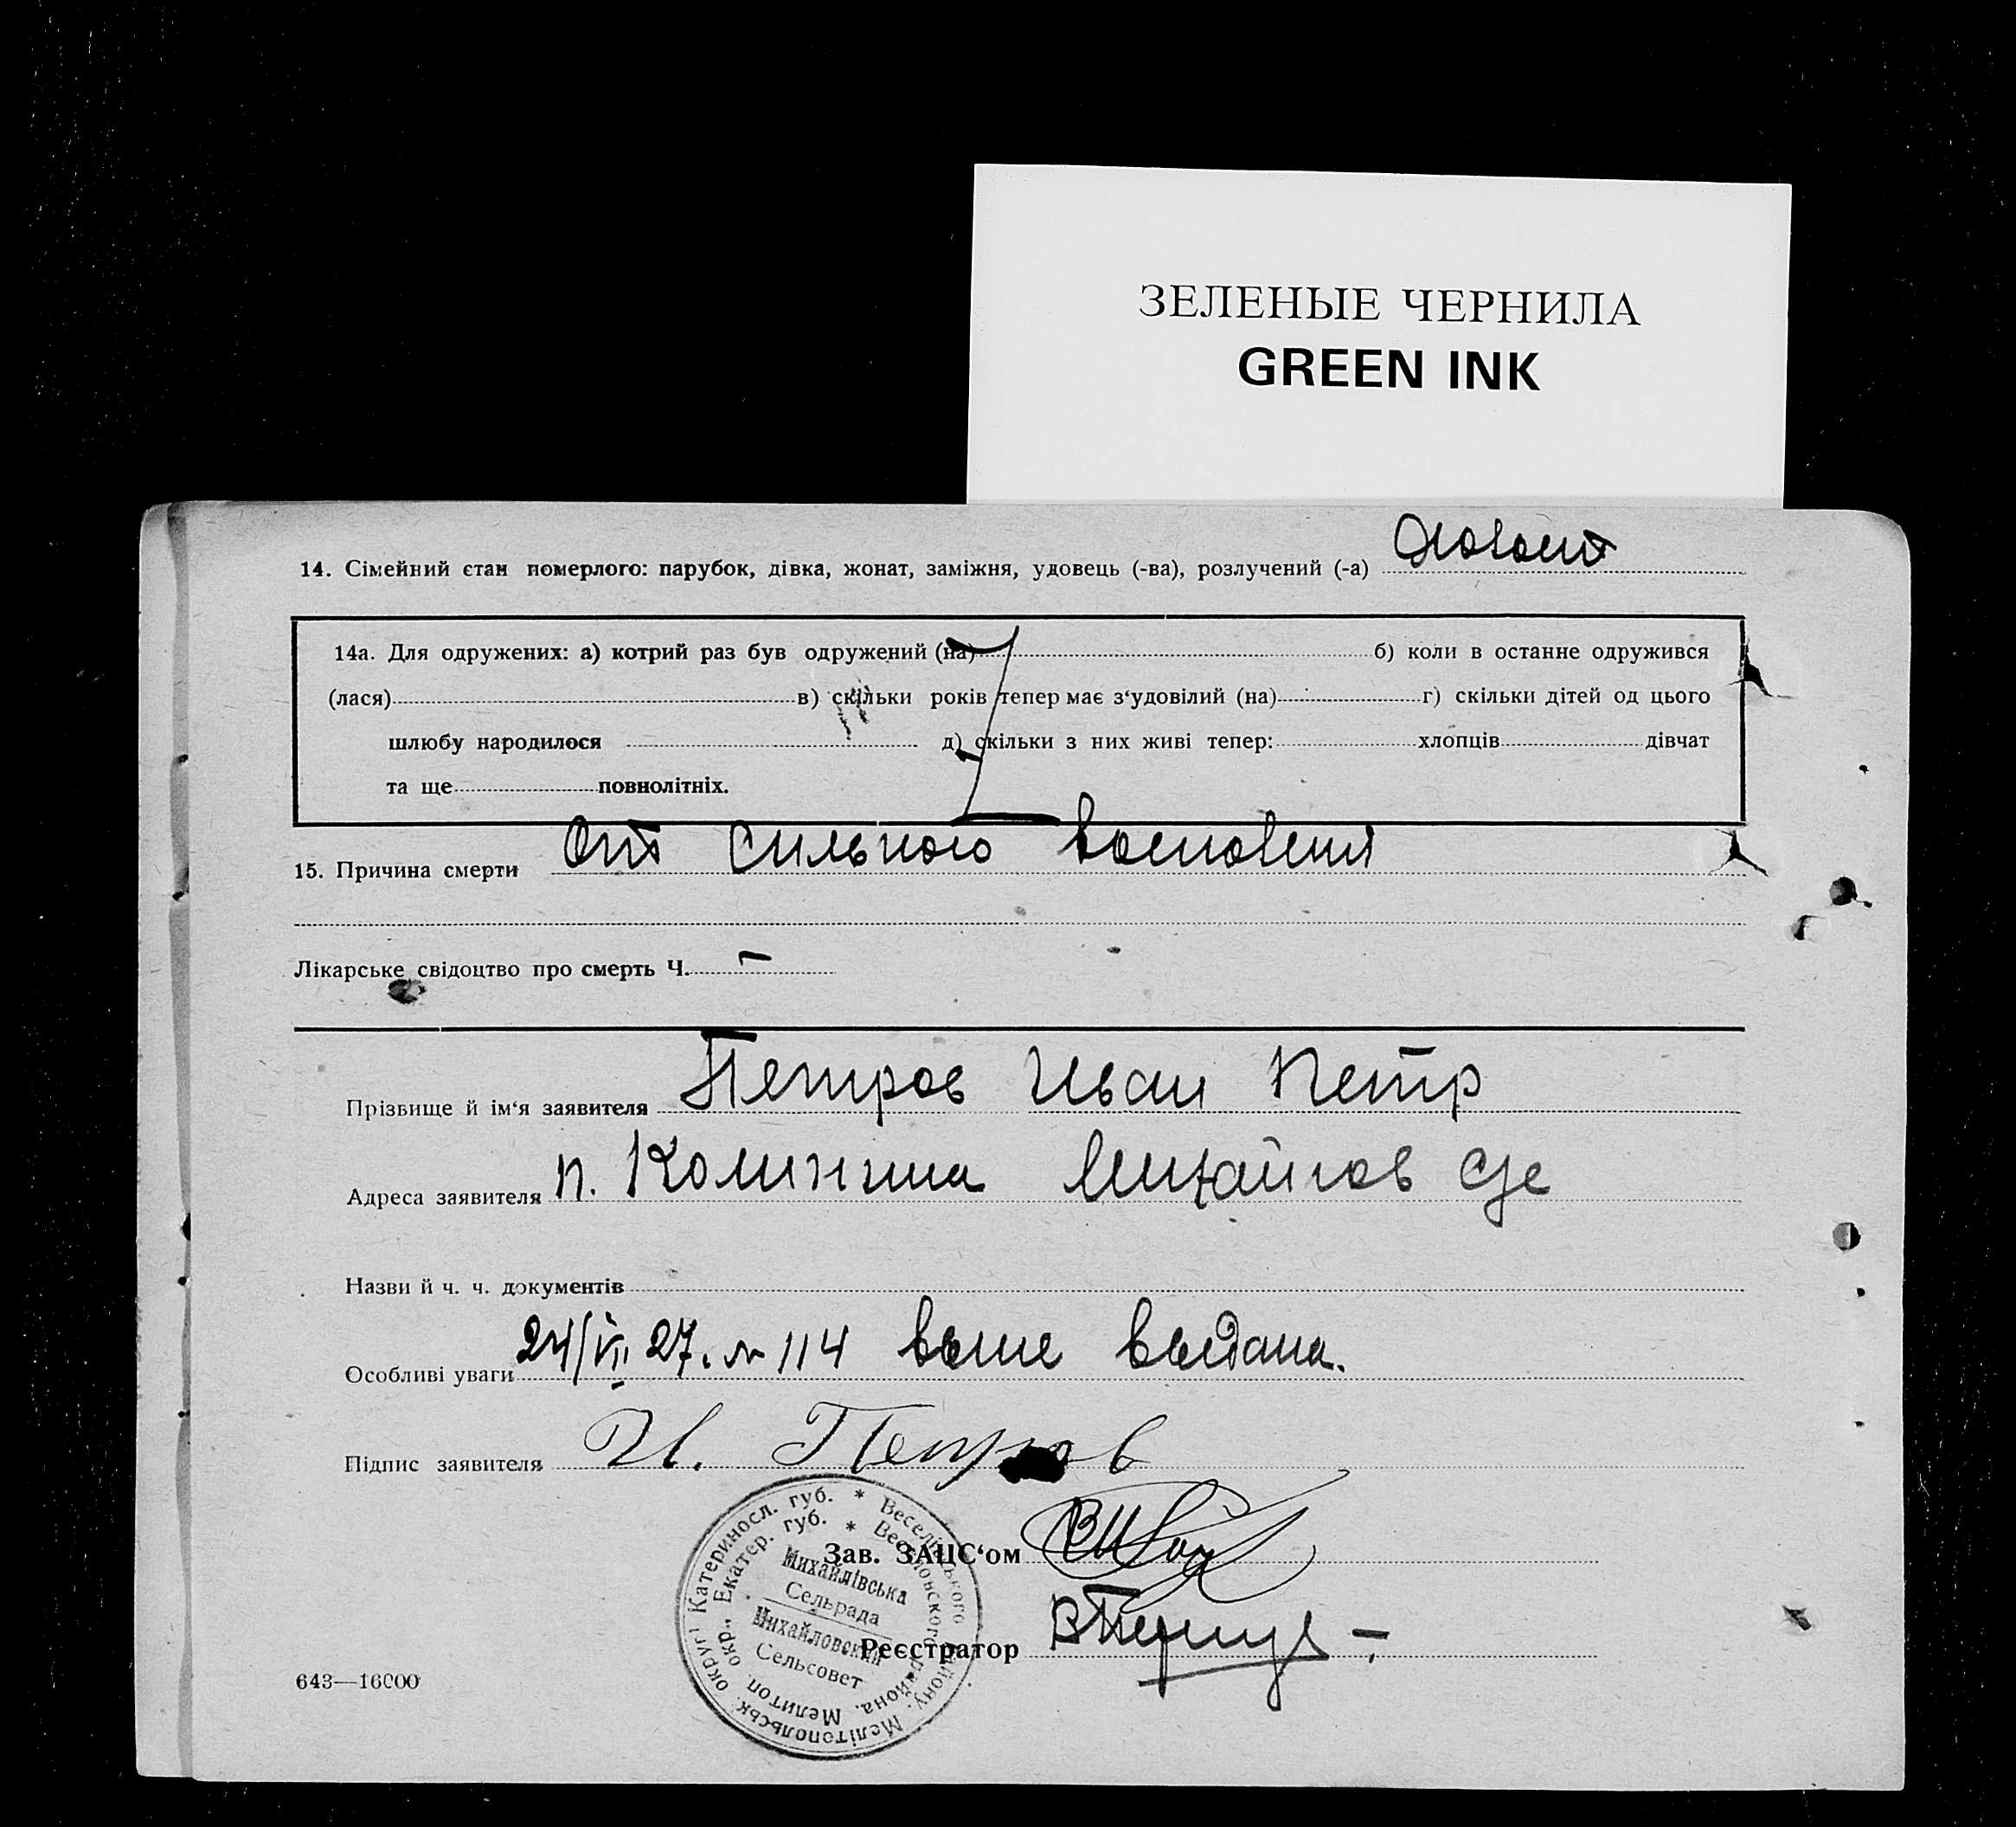 ЗЕЛЕНЫЕ ЧЕРНИЛА
GREEN INK
14. Сімейний стан померлого: парубок, дівка, жонат, заміжня, удовець (-ва), розлучений (-а)
14а. Для одружених: а) котрий раз був одружений (на) б) коли в останне одружився
(лася) в) скільки років тепер має з‘удовілий (на) г) скільки дітей од цього
шлюбу народилося д) скільки з них живі тепер: хлопців дівчат
та ще повнолітніх.
15. Причина смерти От сильного
Лікарське свідоцтво про смерть Ч. –
Прізвище й ім‘я заявителя Петров Иван Петр
Адреса заявителя п. Калинина
Назви й ч. ч. документів
Особливі уваги 24/VII 27. № 114 выдана.
Підпис заявителя И. Петров
Зав. ЗАЦС‘ом
Реєстратор
Катериносл. губ. * Веселівського району, Мелітопольськ. округи
Екатер. губ. * Веселовского района, Мелитоп. окр.,
Михайлівська
Сельрада
Михайловский
Сельсовет
643—16000